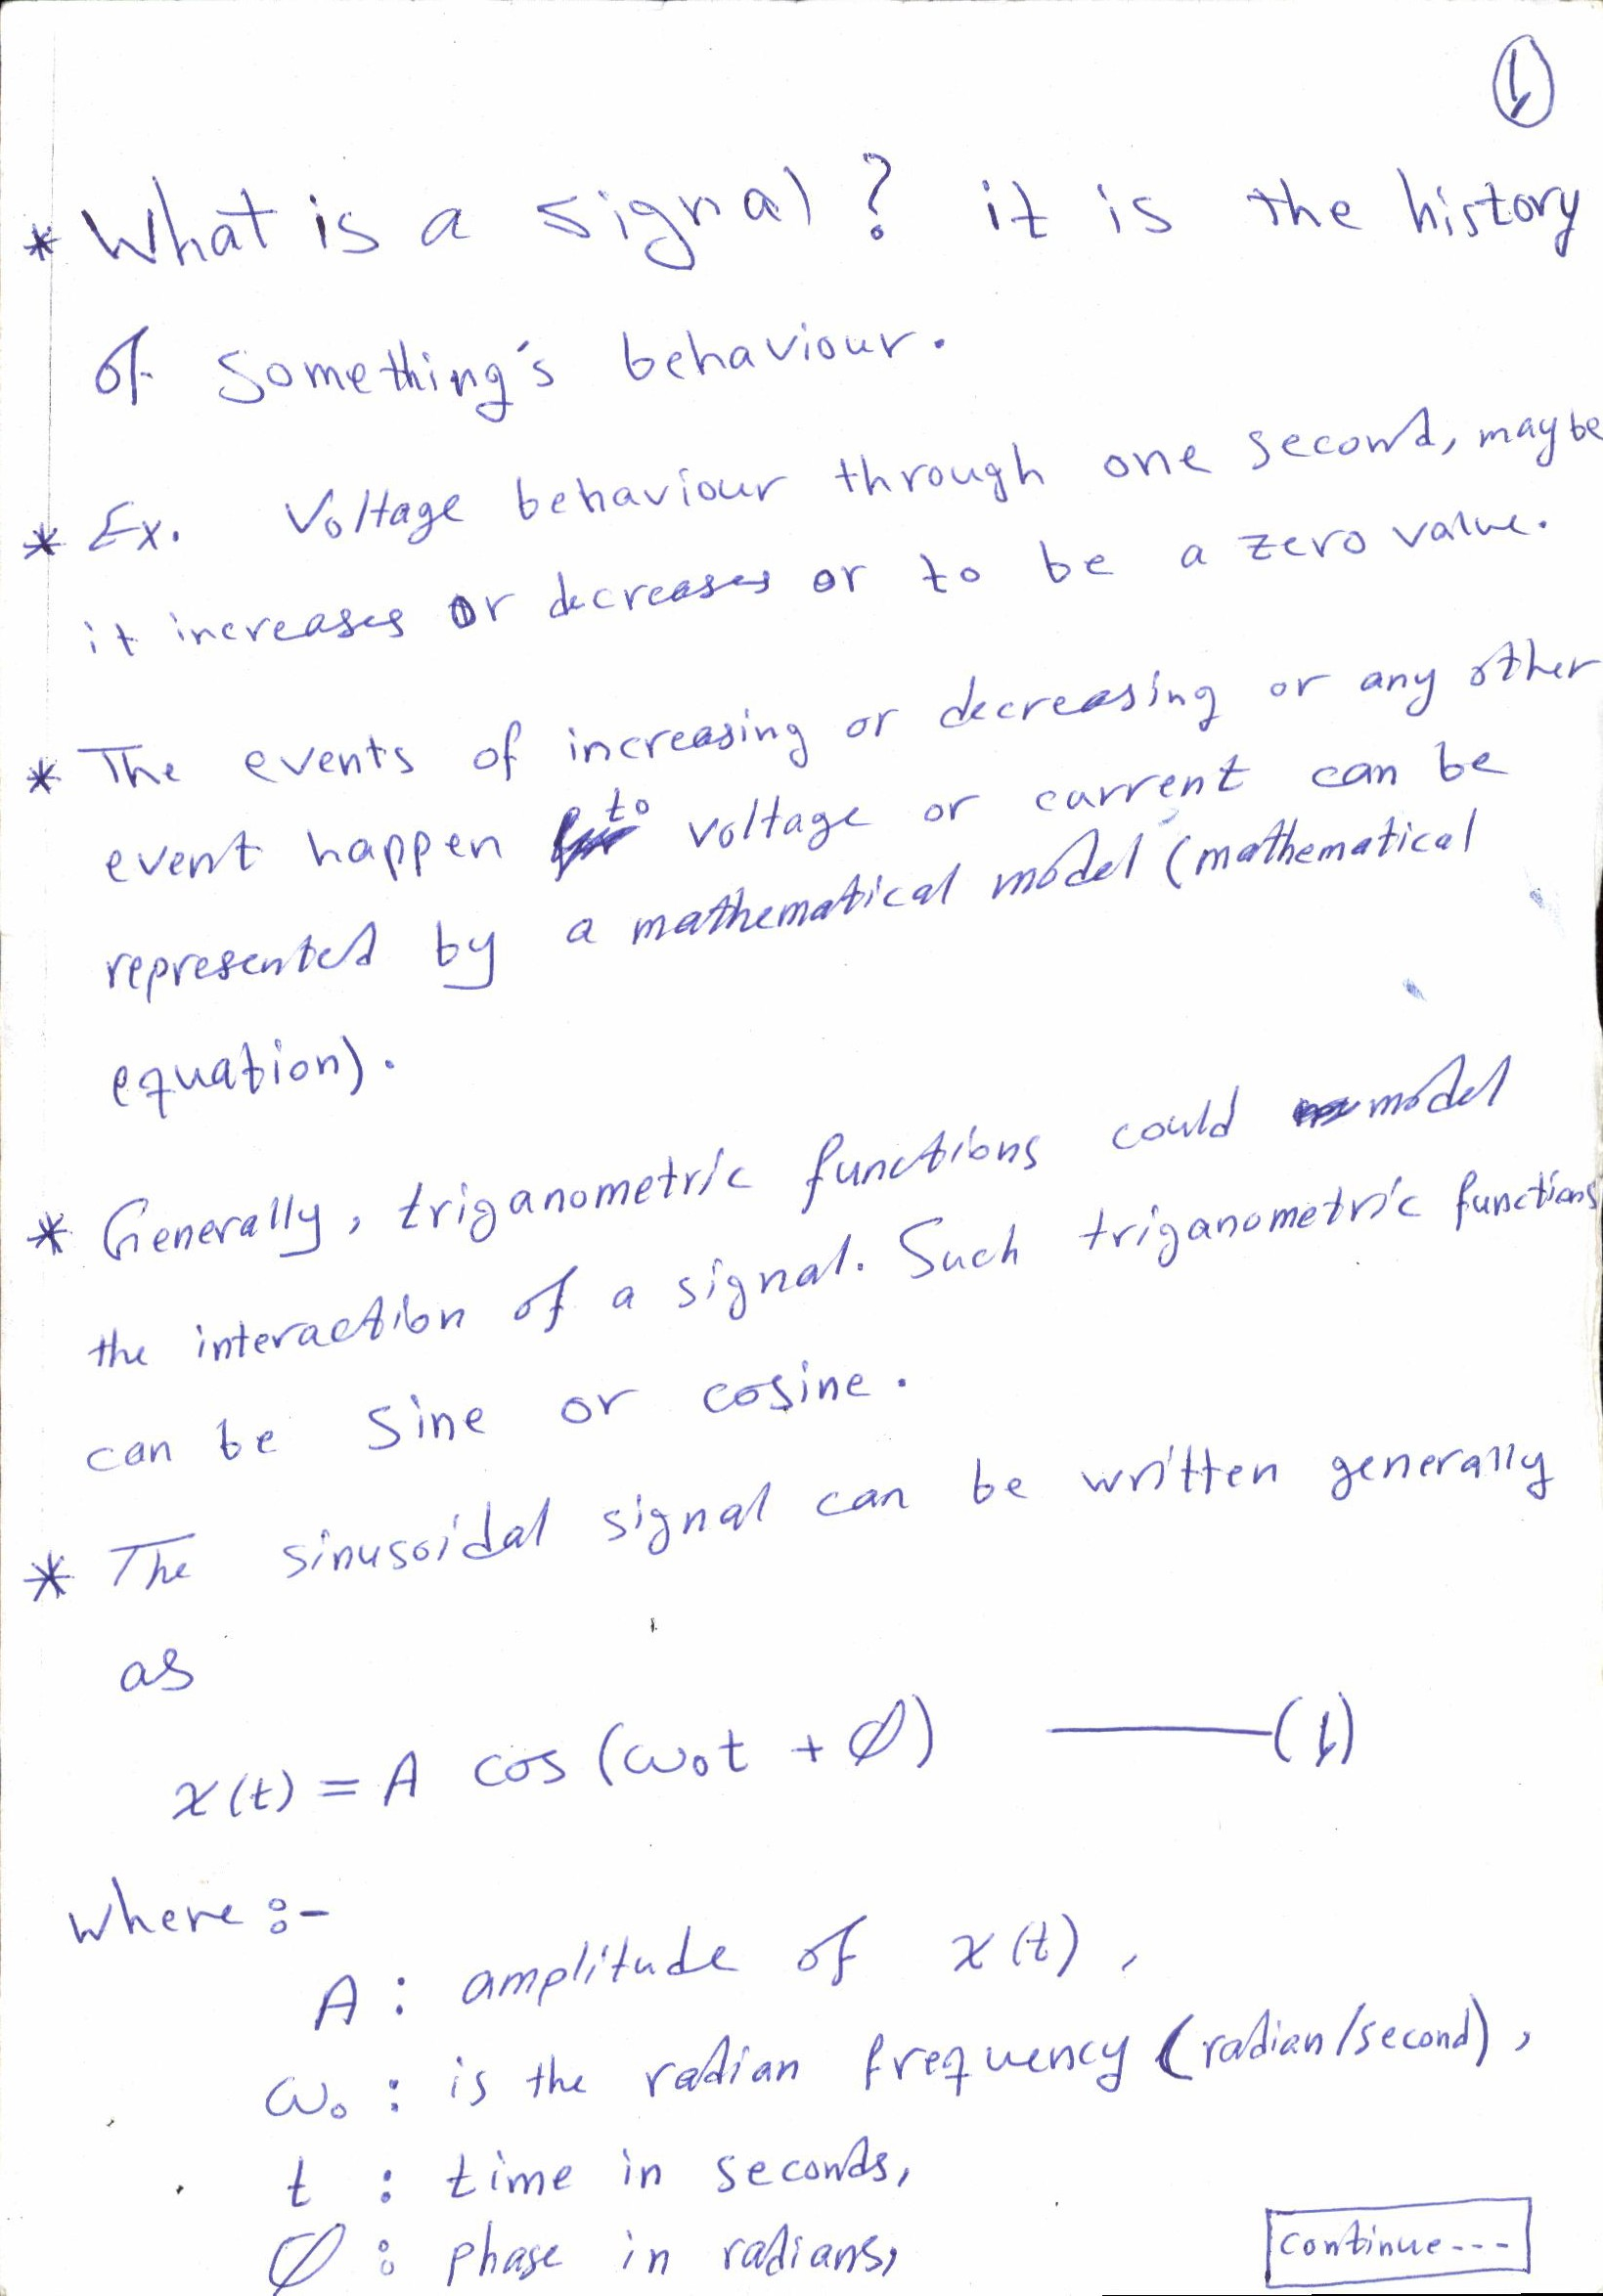 1
* What is a signal? it is the history
of something's behaviour.
* Ex. Voltage behaviour through one second, maybe
it increases or decreases or to be a zero value.
* The events of increasing or decreasing or any other
event happen to voltage or current can be
represented by a mathematical model (mathematical
equation).
* Generally, triganometric functions could model
the interaction of a signal. Such triganometric functions
can be sine or cosine.
* The sinusoidal signal can be written generally
as
x(t) = A cos (ω₀t + Ø) ———(1)
where :-
A : amplitude of x(t),
ω₀ : is the radian frequency (radian/second),
t : time in seconds,
Ø : phase in radians,
continue---